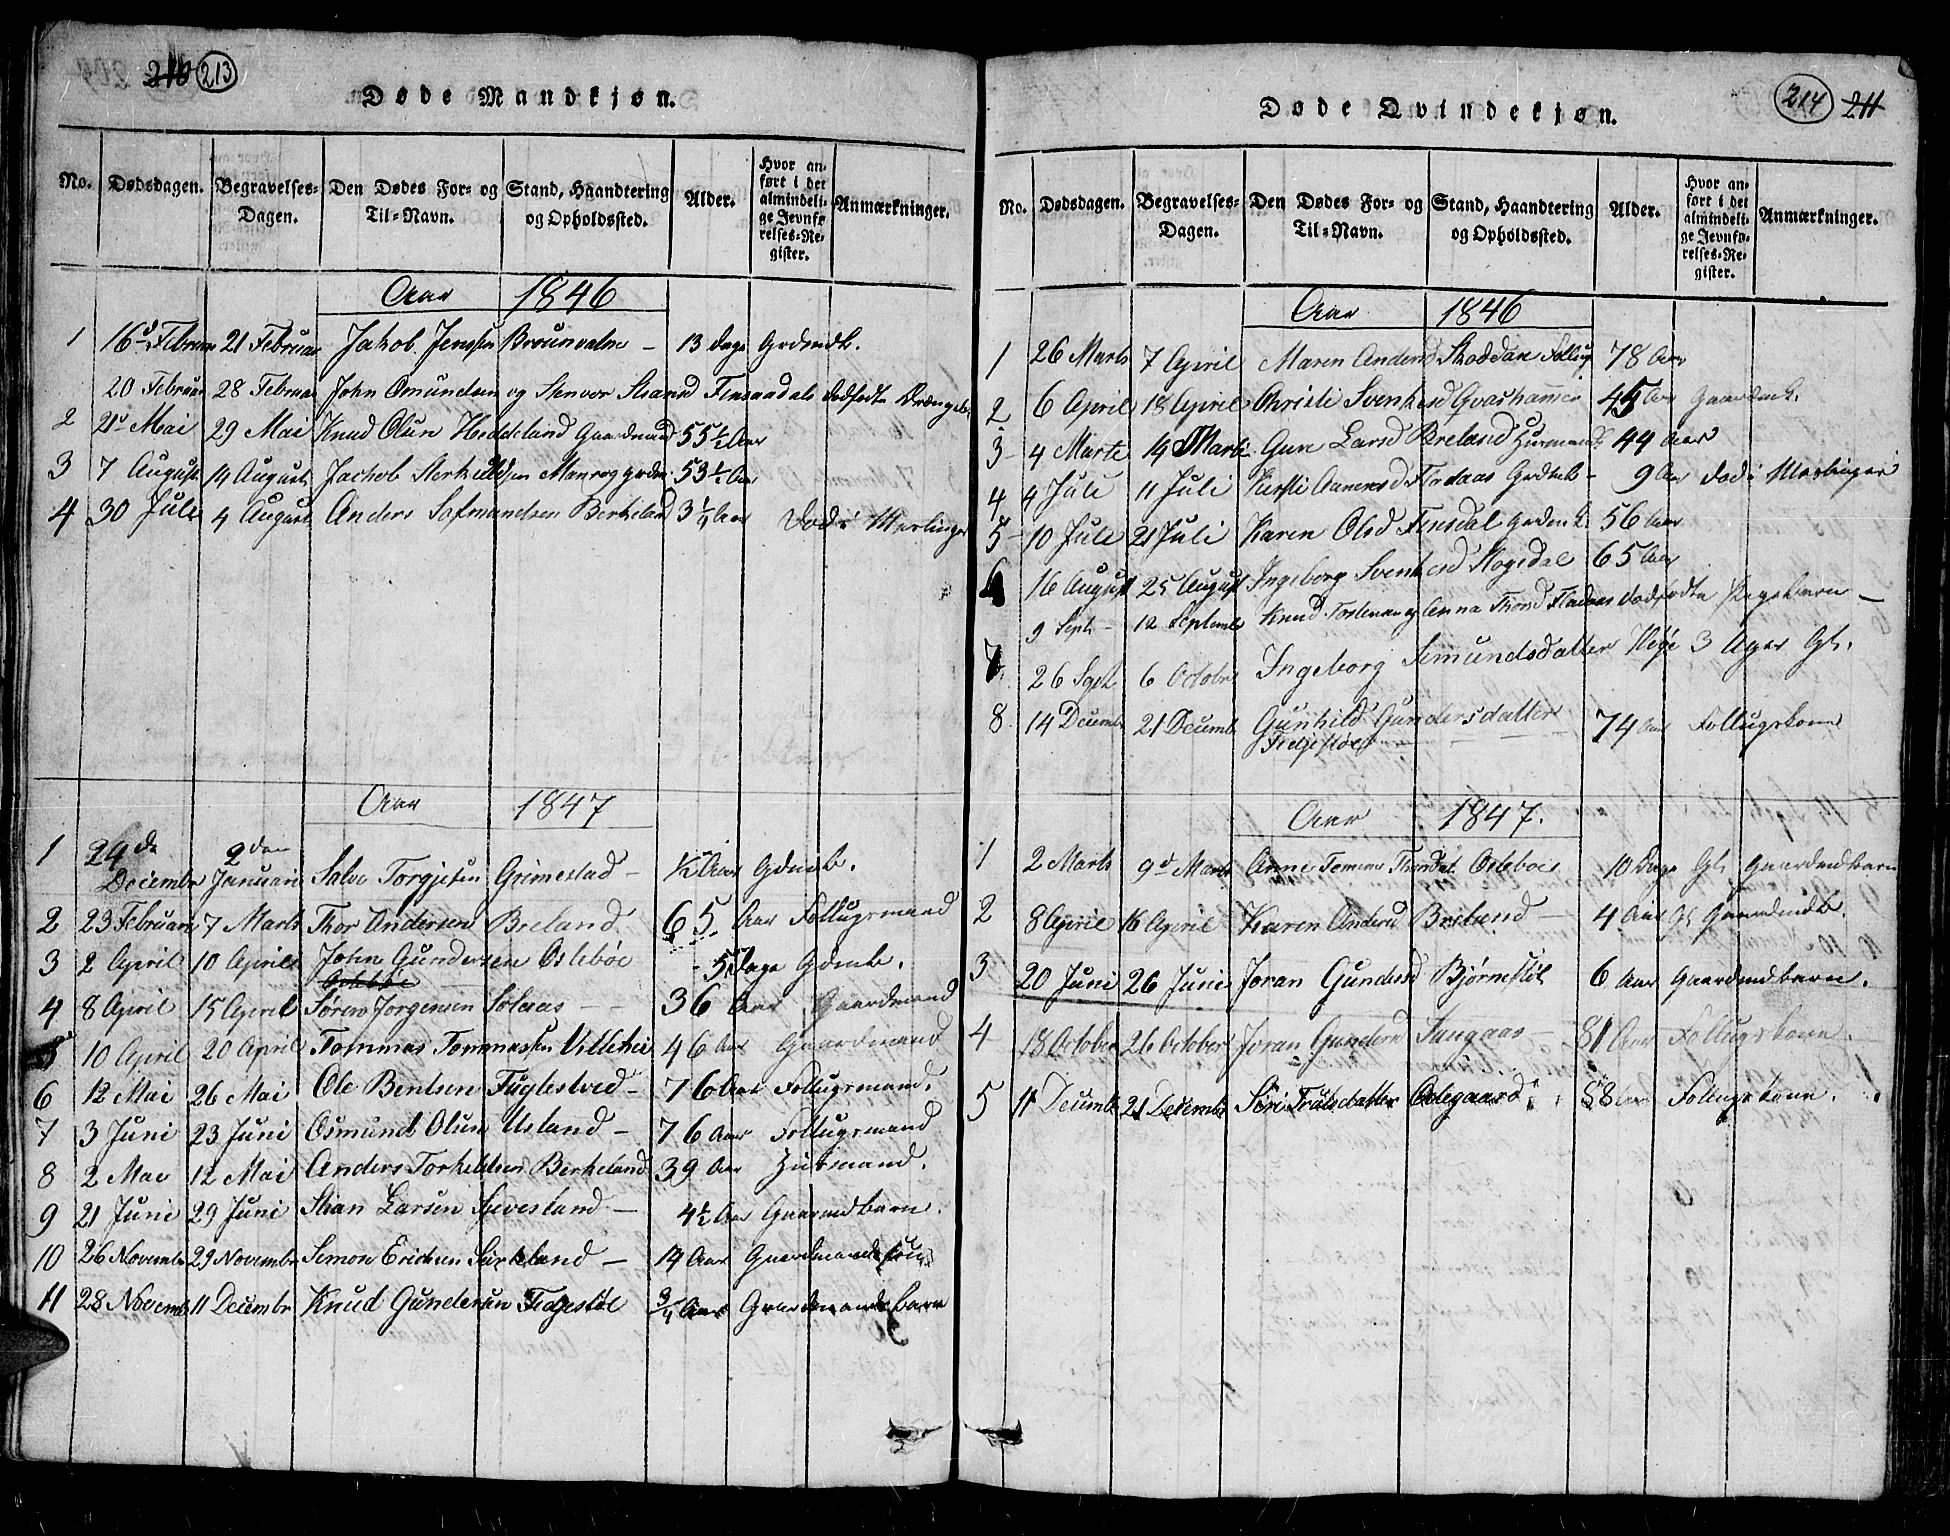 210 213
Døde Mandkjøn.
No. Dødsdagen. Begravelses-Dagen. Den Dødes For- og Til-Navn. Stand, Haandtering og Opholdssted. Alder. Hvor anført i det almindelige Jevnførelses-Register. Anmærkninger.
Aar 1846
1 16d Februar 21 Februar Jakob Jenssen 13 Dage Grdmdb.
20 Februar 28 Februar John Omundsen og Strand Finsaadals dødfødte
2 21d Mai 29 Mai Knud Olsen Heddeland Gaardmand 55½ Aar
3 7 August 14 August Jachob 53½ Aar
4 30 Juli 4 August Anders Berkeland 3¼ Aar Død i Meslinger
Aar 1847
1 24de Decembr 2den Januari Salve Torgjesen Grimestad – Aar Gdmdb.
2 23 Februari 7 Marts Thor Andersen Breland 65 Aar Follugsmand
3 2 April 10 April John Gundersen Oslebøe 5 Dage Gdmdb.
4 8 April 15 April Søren Jørgensen Solaas – 36 Aar Gaardmand
5 10 April 20 April Tommas Tommassen 46 Aar Gaardmand
6 12 Mai 26 Mai Ole Bentsen Fuglestved – 76 Aar Follugsmand.
7 3 Juni 23 Juni Osmund Olsen Usland – 76 Aar Follugsmand
8 2 Mai 12 Mai Anders Torkeldsen Berkeland 39 Aar Huusmand.
9 21 Juni 29 Juni Stian Larsen – 4½ Aar Gaarmdbarn.
10 26 Novembr 29 Novembr Simon Erichsen – 14 Aar Gaardmands
11 28 Novemb 11 Decembr Knud Gundersen Fidjestøl 3/4 Aar Gaardmands barn
214 211
Døde Qvindekjøn.
No. Dødsdagen. Begravelses-Dagen. Den Dødes For- og Til-Navn. Stand, Haandtering og Opholdssted. Alder. Hvor anført i det almindelige Jevnførelses-Register. Anmærkninger.
Aar 1846
1 26 Marts 7 April Maren Andersd 78 Aar
2 6 April 18 April Christi 45 Aar
3 4 Marts 14 Marts Gun Larsd Breland 44 Aar
4 4 Juli 11 Juli Kirsti Aanensd Fladaas 9 Aar Død i Meslinger
5 10 Juli 21 Juli Karen Olsd Finsdal 56 Aar
6 16 August 25 August Ingeborg 65 Aar
9 Sept – 12 Septemb Knud og Anna Thorsd Fladaas dødfødte Pigebarn –
7 26 Sept 6 Octobr Ingeborg Simundsdatter 3 Uger Gl.
8 14 Decembr 21 Decemb Gunhild Gundersdatter 74 Aar Follugskone
Fidjestøl
Aar 1847.
1 2 Marts 9d Marts Anne Oslebøe 10 Dage Gl Gaardmdbarn
2 8 April 16 April Karen Andersd Breland – 4 Aar Gl Gaardmdb.
3 20 Juni 26 Juni Joran Gundersd Bjørnestøl 6 Aar Gaardmdbarn.
4 18 October 26 October Joran Gundersd Saugaas – 81 Aar Follugskone.
5 11 Decembr 21 Decembr Siri Trulsdatter Odegaard 88 Aar Follugskone.